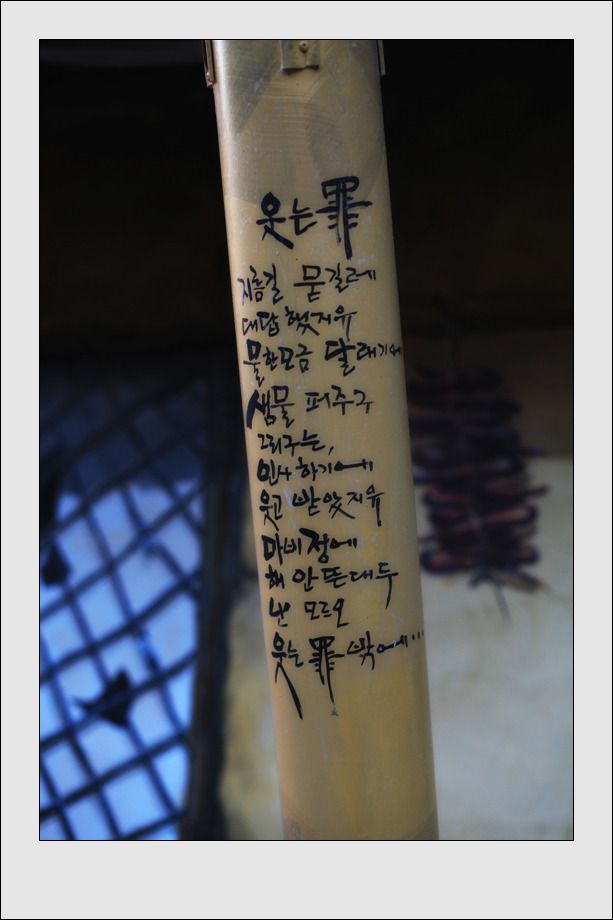 웃는 罪
지름길 묻길레
대답했지유
물한모금 달래기에
샘물 퍼주구
그리구는,
인사하기에
웃고 받았지유
마비정에
해 안뜬대두
난 모르오
웃는 罪 밖에...